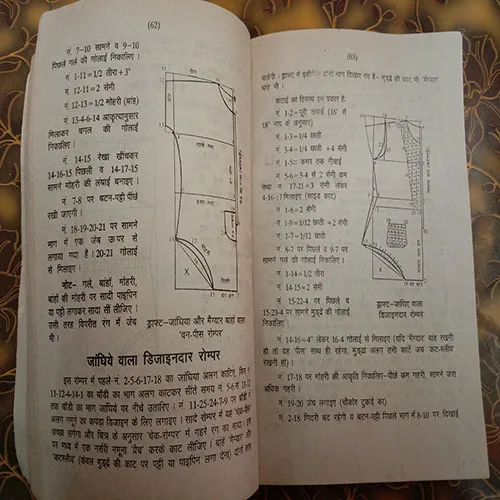 (62)
नं. 7-10 सामने व 9-10
पिछले गले की गोलाई निकालिए ।
नं. 1-11=1/2 तीरा+3"
नं. 12-11=2 सेमी
नं. 12-13=1/2 मोहरी (बांह)
नं. 13-4-6-14 आकृत्यानुसार
मिलाकर बगल की गोलाई
निकालिए ।
नं. 14-15 रेखा खींचकर
14-16-15 पिछली व 14-17-15
सामने मोहरी की लंबाई बनाइए ।
नं. 7-8 पर बटन-पट्टी पीछे
रखी जाएगी ।
नं. 18-19-20-21 पर सामने
भाग में एक जेब ऊपर से
लगाया गया है । 20-21 गोलाई
से मिलाइए ।
नोट- गले, बाहों, मोहरी,
बांहों की मोहरी पर सादी पाइपिन
या पट्टी लगाकर सादा सीं लीजिए ।
उसी तरह विपरीत रंग में जेब
भी ।
ड्राफ्ट-जांघिया और मैग्यार बाहों वाला
'वन-पीस रोम्पर'
जांघिये वाला डिजाइनदार रोम्पर
इस रोम्पर में पहले नं. 2-5-6-17-18 का जांघिया अलग काटिए, फिर नं.
11-12-4-14-1 का बॉडी का भाग अलग काटकर सीते समय नं. 5-6 से
तक बॉडी का भाग जांघिये पर नीचे उतारिए । नं. 11-25-24-7-9 पर बॉडी में
अलग नमूने का कपड़ा डिजाइन के लिए लगाइए । सादे रोम्पर में यह 'चेक-पीस'
अच्छा लगेगा और चित्र के अनुसार 'चेक-रोम्पर' में गहरे रंग का सादा । इस
पर मध्य में एक नर्सरी नमूना 'प्रैच' करके काट लीजिए । बाहें 'मैग्यार' और
'कटस्लीव' (केवल मुड्ढे की काट पर पट्टी या पाइपिन लगा देना) दोनों तरह
(63)
चलेगी । ड्राफ्ट में इसीलिए दोनों भाग दिखाए गए हैं- मुड्ढे की काट भी, 'मैग्यार'
बांह भी ।
कटाई का हिसाब इस प्रकार है:
नं. 1-2=पूरी लंबाई (16" से
18" नाप के अनुसार)
नं. 1-3=1/4 छाती
नं. 3-4=1/4 छाती +4 सेमी
नं. 1-5= कमर तक नीचाई
नं. 5-6=3-4 से 2 सेमी कम
तथा नं. 17-21=3 सेमी लेकर
4-16-21 मिलाइए (साइड काट)
नं. 1-8=2 सेमी
नं. 1-9=1/12 छाती +2 सेमी
नं. 1-7=1/12 छाती
नं. 8-7 पर पिछले व 9-7 पर
सामने गले की गोलाई निकालिए ।
नं. 1-14=1/2 तीरा
नं. 14-15=2 सेमी
नं. 15-22-4 पर पिछले व
15-23-4 पर सामने मुड्ढे की गोलाई
निकालिए ।
ड्राफ्ट-जांघिए वाला
डिजाइनदार रोम्पर
नं. 14-16=4" लेकर 16-4 गोलाई से मिलाइए (यदि 'मैग्यार' बांह रखनी
हो तो यह 'पीस' साथ ही रहेगा, मुड्ढा अलग तभी काटें जब 'कट-स्लीव'
रखनी हो) ।
नं. 17-18 पर मोहरी की आकृति निकालिए-पीछे कम गहरी, सामने जरा
अधिक गहरी ।
नं. 19-20 जेब लगाइए (चौकोर टुकड़े का)
नं. 2-18 गिदरी बंद रहेगी व बटन-पट्टी पिछले भाग में 8-10 पर दिखाई